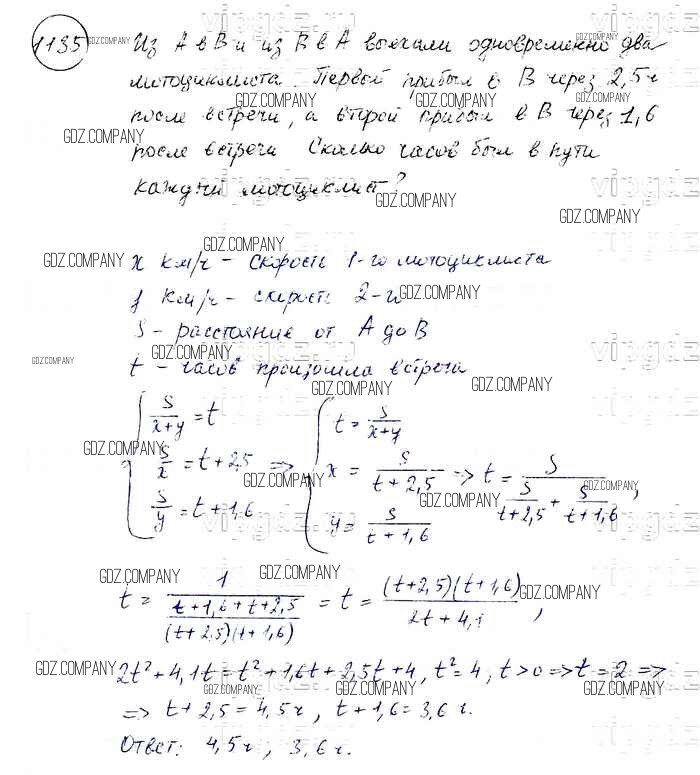 1135 Из А в В и из В в А выехали одновременно два
мотоциклиста. Первый прибыл в В через 2,5 ч
после встречи, а второй прибыл в В через 1,6
после встречи Сколько часов был в пути
каждый мотоциклист?
x км/ч - скорость 1-го мотоциклиста
y км/ч - скорость 2-го
S - расстояние от А до В
t - часов произошла встреча
{ S/(x+y) = t { t = S/(x+y)
S/x = t+2,5 => x = S/(t+2,5) => t = S/(S/(t+2,5) + S/(t+1,6)),
S/y = t+1,6 y = S/(t+1,6)
t = 1/((t+1,6+t+2,5)/((t+2,5)(t+1,6))) = t = (t+2,5)(t+1,6)/(2t+4,1),
2t²+4,1t = t²+1,6t+2,5t+4, t²=4, t>0 => t=2 =>
=> t+2,5=4,5 ч, t+1,6=3,6 ч.
Ответ: 4,5 ч, 3,6 ч.
GDZ.COMPANY
vipgdz